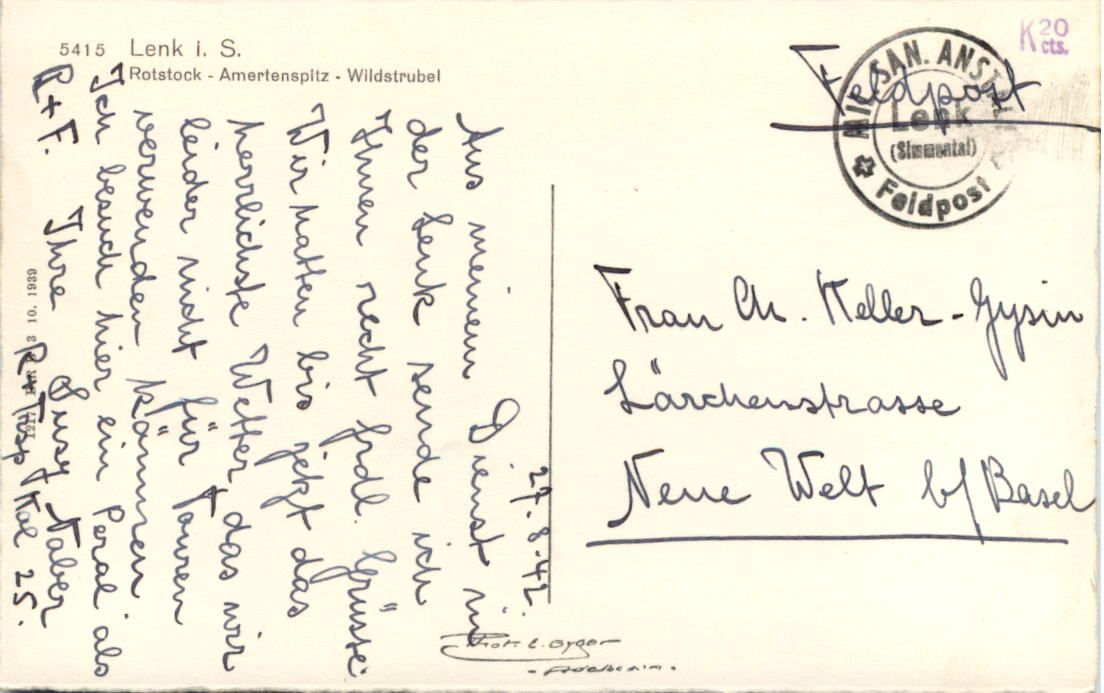 5415 Lenk i. S.
Rotstock - Amertenspitz - Wildstrubel
K 20
cts.
Feldpost
MIL. SAN. ANST.
Lenk
(Simmental)
Feldpost
27. 8. 42.
Aus meinem Dienst in
der Lenk sende ich
Ihnen recht frdl. Grüsse.
Wir hatten bis jetzt das
herrlichste Wetter, das wir
leider nicht für Touren
verwenden können
Ich besuch hier ein als
R+F. Ihre Susy
R-Trsp Kol 25.
Frau Ch. Keller-Gysin
Lärchenstrasse
Neue Welt b/Basel
3 10. 1939
Phot. E. Gyger
Adelboden.